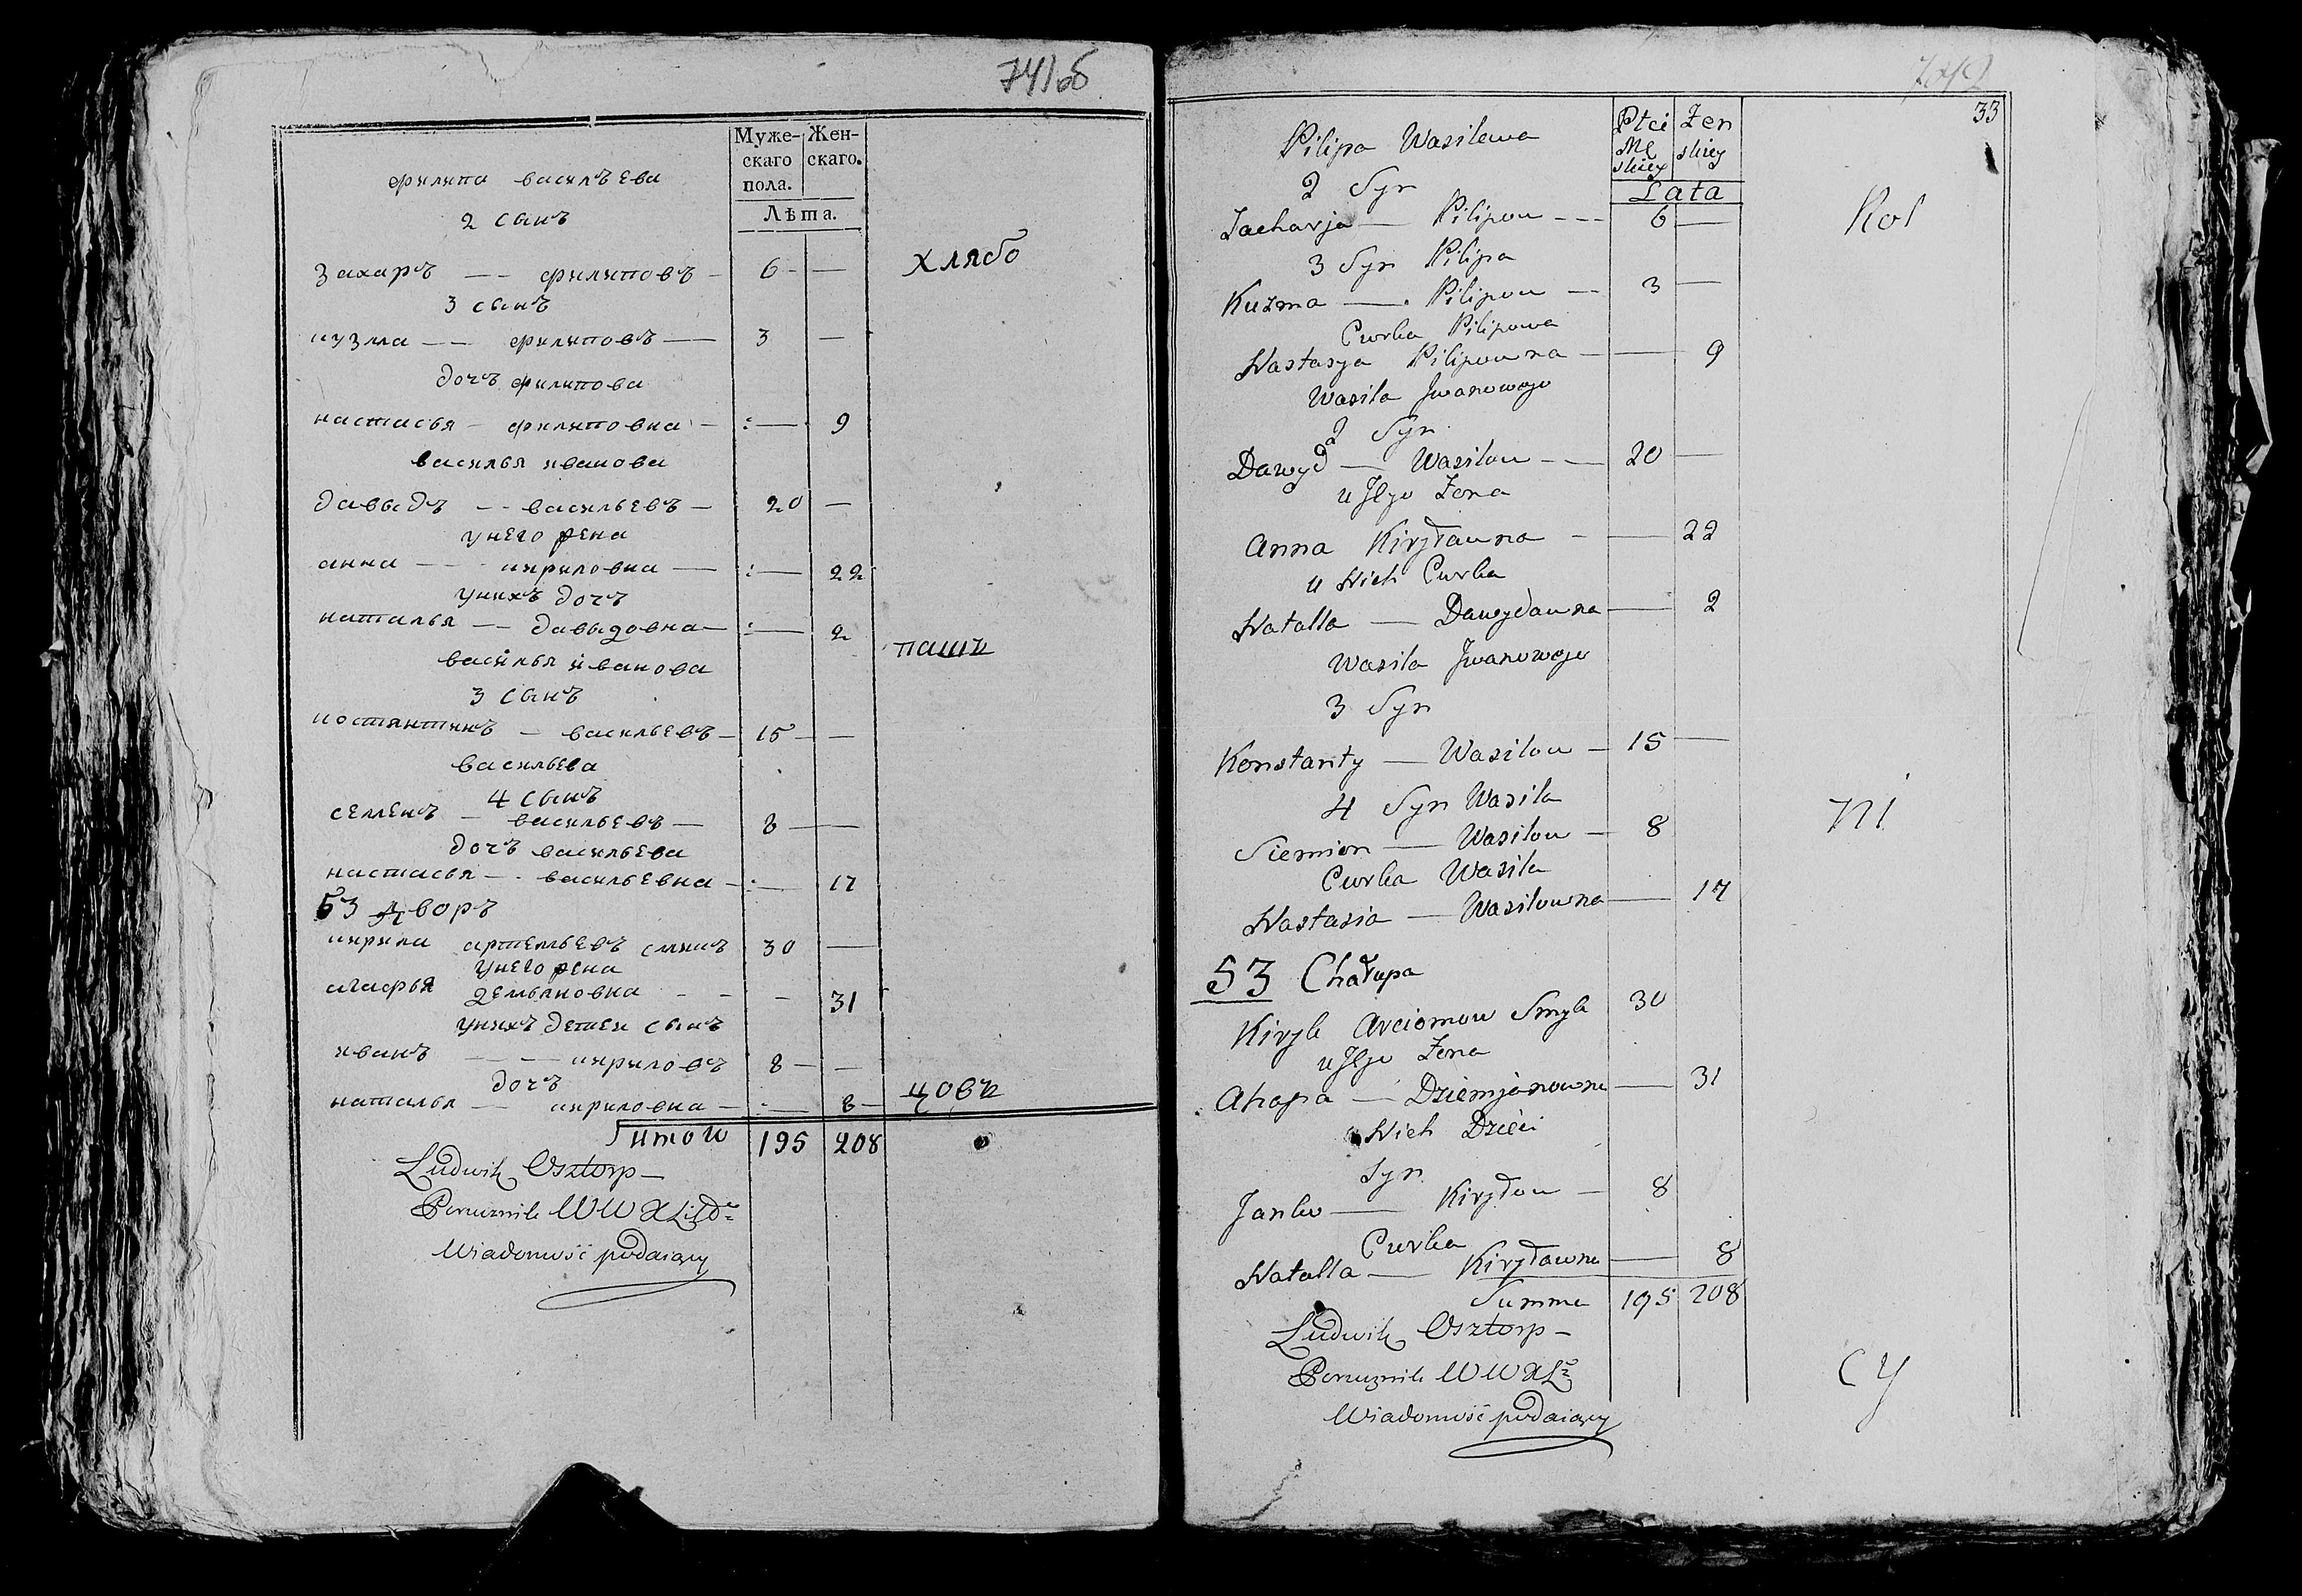 741об
Муже- Жен-
скаго скаго.
пола.
Лѣта.
филипа василъева
2 сынъ
захаръ — — филиповъ — 6 — — хлябо
3 сынъ
кузма — — филиповъ — 3 —
дочъ филипова
настасья — филиповна — : — 9
василья иванова
давыдъ — — васильевъ — 20 —
унего жена
анна — — кириловна — : — 22
унихъ дочъ
наталья — — давыдовна — : — 2
пашъ
василья иванова
3 сынъ
костянтинъ — васильевъ — 15 — —
васильева
4 сынъ
семенъ — васильевъ — 8 — —
дочъ васильева
настасья — васильевна — : — 17
53 дворъ
кирила артемьевъ смикъ 30 —
унего жена
агафья демьяновна — — — 31
унихъ детеи сынъ
иванъ — — кириловъ 8 — —
дочъ
наталья — кириловна — : — 8 — цовъ
итого 195 208
Ludwik Osztorp —
Porucznik W W X Lit
Wiadomość podaiący
742
33
Płci Żen
Mę skiey
skiey
Lata
Pilipa Wasilewa
2 Syn
Zacharja — Pilipou - - - 6 — Kol
3 Syn Pilipa
Kuzma — Pilipou — 3 —
Curka Pilipowa
Nastasya Pilipouna — — 9
Wasila Jwanowogo
2 Syn
Dawyd — Wasilou — — 20 —
u Jego Żona
Anna Kiryłauna - — 22
u Nich Curka
Natalla — Dawydauna — 2
Wasila Jwanowogo
3 Syn
Konstanty — Wasilou — 15 —
4 Syn Wasila
Siemion — Wasilou — 8
Curka Wasila
Nastasia — Wasilouna — 17
53 Chałupa
Kiryła Arciomou Smyk 30
u Jego Żona
Ahapa — Dziemjanouna — 31
u Nich Dzieci
Syn
Janko — Kiryłou — 8
Curka
Natalla — Kiryłauna — 8
Summa 195 208
Ludwik Osztorp —
Porucznik W W X L
Wiadomość podaiący
су